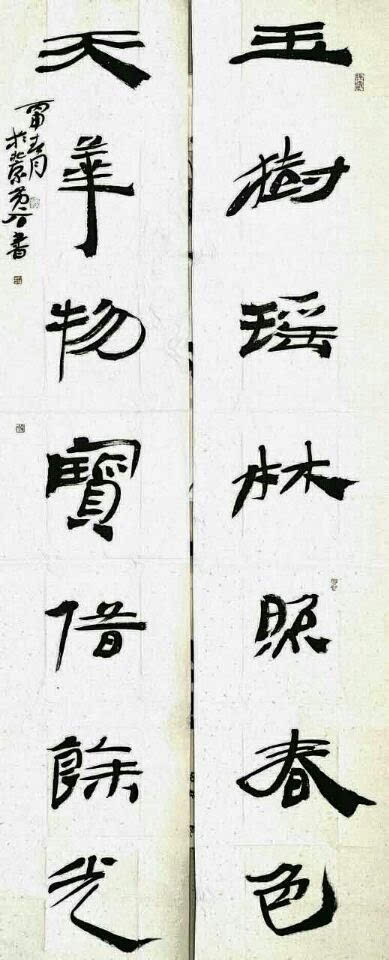 玉樹瑶林照春色
天華物寳借餘光